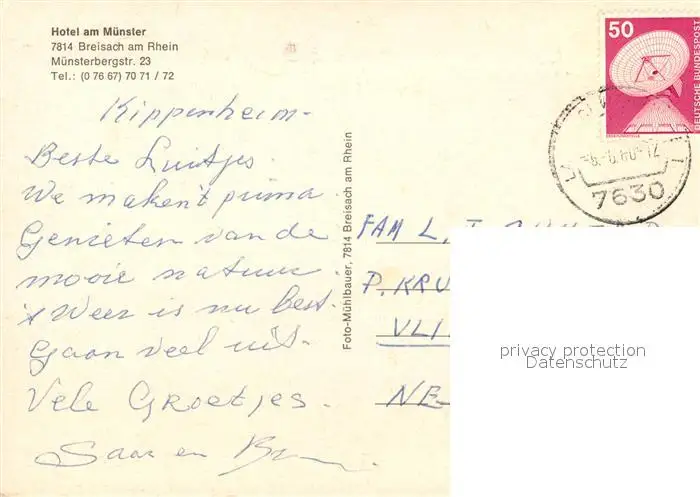 Hotel am Münster
7814 Breisach am Rhein
Münsterbergstr. 23
Tel.: (0 76 67) 70 71 / 72
Kippenheim-
Beste Luitjes.
We maken't prima
Genieten van de
mooie natuur.
't Weer is nu best-
Gaan veel uit-
Vele Groetjes.
Saar en
Foto-Mühlbauer, 7814 Breisach am Rhein
50
DEUTSCHE BUNDESPOST
7630
FAM L.
P. KRU
VLI
NE-
privacy protection
Datenschutz